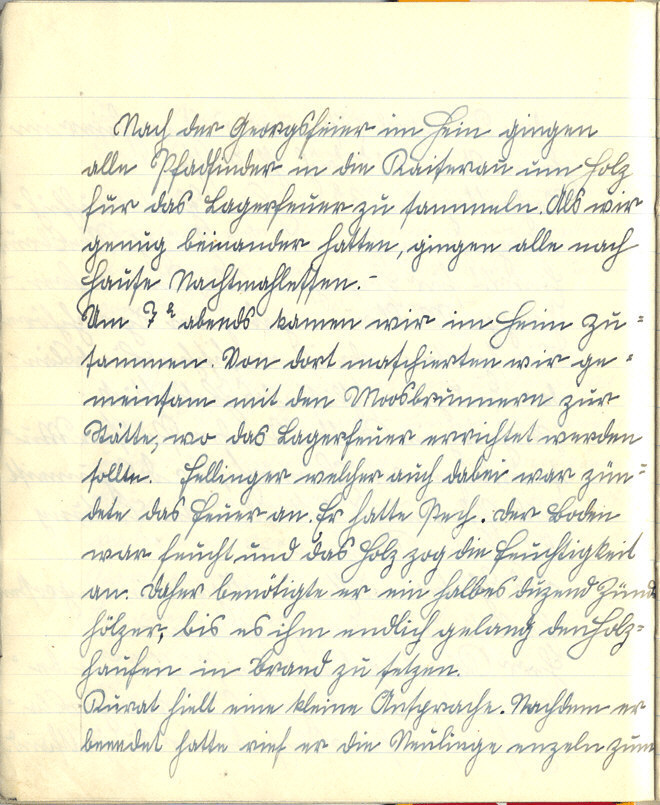 Nach der Georgsfeier im Heim gingen
alle Pfadfinder in die Kaiserau um Holz
für das Lagerfeuer zu sammeln. Als wir
genug beinander hatten, gingen alle nach
Hause Nachtmahlessen.-
Um 7 abends kamen wir im Heim zu=
sammen. Von dort maschierten wir ge=
meinsam mit den Moosbrunnern zur
Stätte, wo das Lagerfeuer errichtet werden
sollte. Fellinger welcher auch dabei war zün=
dete das Feuer an. Er hatte Pech. Der Boden
war feucht und das Holz zog die Feuchtigkeit
an. Daher benötigte er ein halbes duzend Zünd
hölzer, bis es ihm endlich gelang den Holz=
haufen in Brand zu setzen.
Kurat hielt eine kleine Ansprache. Nachdem er
beendet hatte rief er die Neulinge enzeln zum